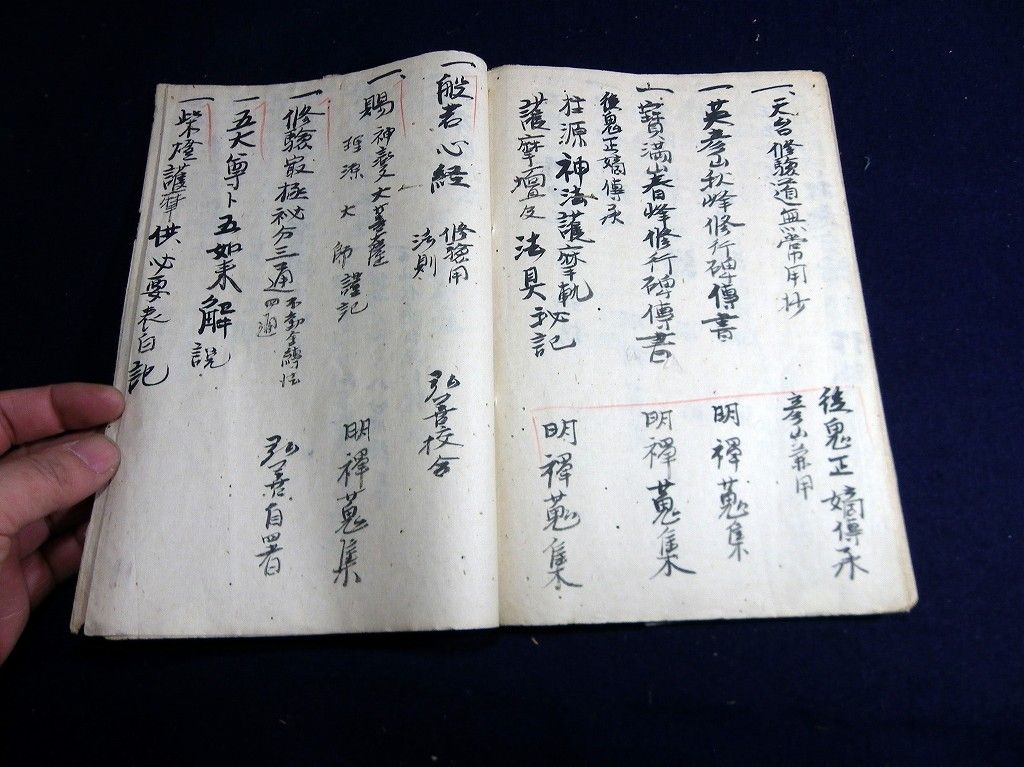 一、天台修験道無常用抄
後鬼正嫡傳承
彦山兼用
一英彦山秋峰修行碑傳書
明禪蒐集
一寶満山春峰修行碑傳書
明禪蒐集
後鬼正嫡傳承
柱源神法護摩軌
護摩壇反法具秘記
明禪蒐集
一般若心経
修験用
法則
弘善校合
一、賜神変大菩薩
理源大師謹記
明禪蒐集
一修験最極秘分三通
不動金縛法
四通
弘善自署
一五大尊ト五如来解説
一柴燈護摩供必要表白記